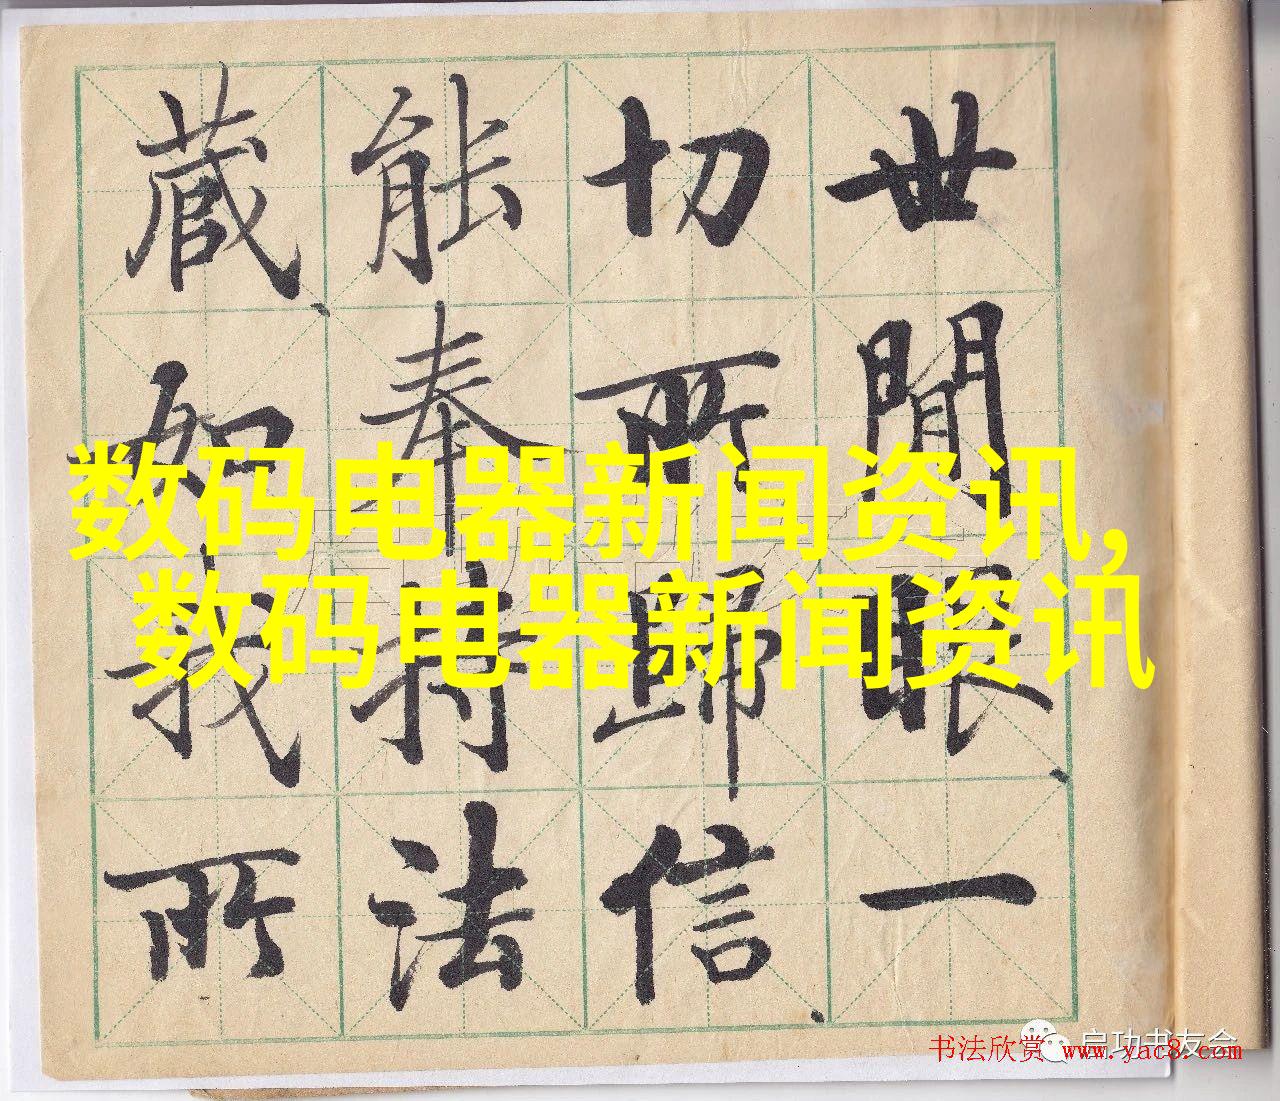 世間眼一
切所歸信
能奉持法
藏如我所
数码电器新闻资讯,
数码电器新闻资讯
启功书友会
书法欣赏 www.yac8.com